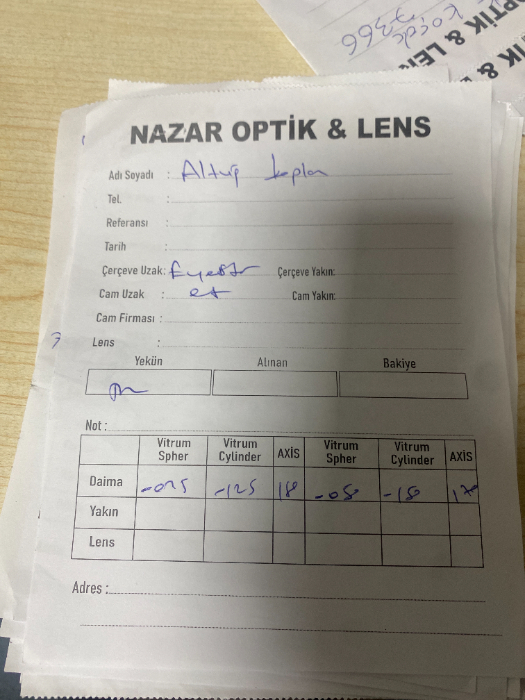 koçak
7366
PTİK & LEN
İK &
NAZAR OPTİK & LENS
Adı Soyadı : Altuğ kaplan
Tel. :
Referansı :
Tarih :
Çerçeve Uzak: Çerçeve Yakın:
Cam Uzak : et Cam Yakın:
Cam Firması :
Lens :
Yekün Alınan Bakiye
Not :
Vitrum Spher Vitrum Cylinder AXİS Vitrum Spher Vitrum Cylinder AXİS
Daima -025 -125 18 -050 -150 170
Yakın
Lens
Adres :